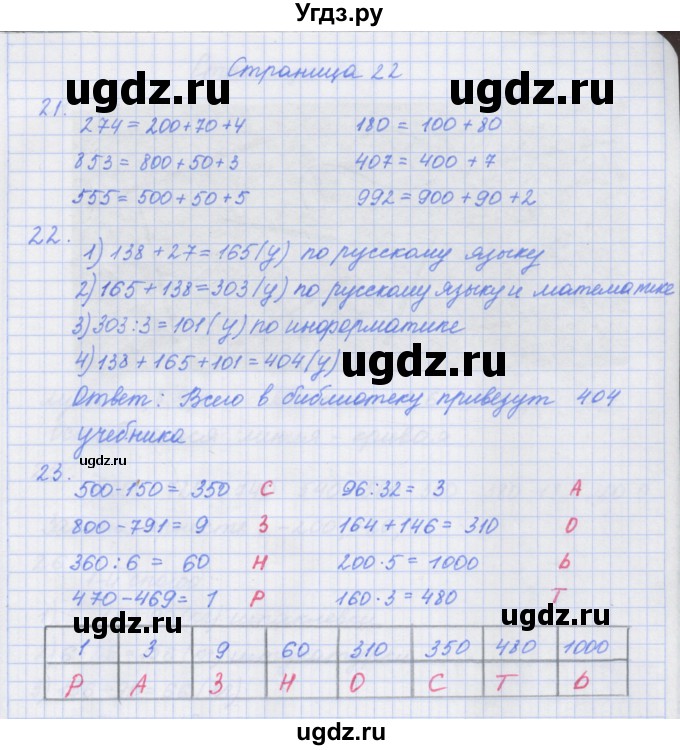 Угдз.ру
Страница 22
ugdz.ru ugdz.ru
21.
274 = 200+70+4 180 = 100+80
853 = 800+50+3 407 = 400+7
555 = 500+50+5 992 = 900+90+2
ugdz.ru
22.
1) 138+27=165(у) по русскому языку
2) 165+138=303(у) по русскому языку и математике
3) 303:3=101(у) по информатике
4) 138+165+101=404(у)
ugdz.ru
Ответ: Всего в библиотеку привезут 404
учебника
ugdz.ru
23.
500-150= 350 С 96:32= 3 А
800-791= 9 З 164+146=310 О
360:6= 60 Н 200·5=1000 Ь
470-469= 1 Р 160·3=480 Т
ugdz.ru ugdz.ru
1 3 9 60 310 350 480 1000
Р А З Н О С Т Ь
ugdz.ru